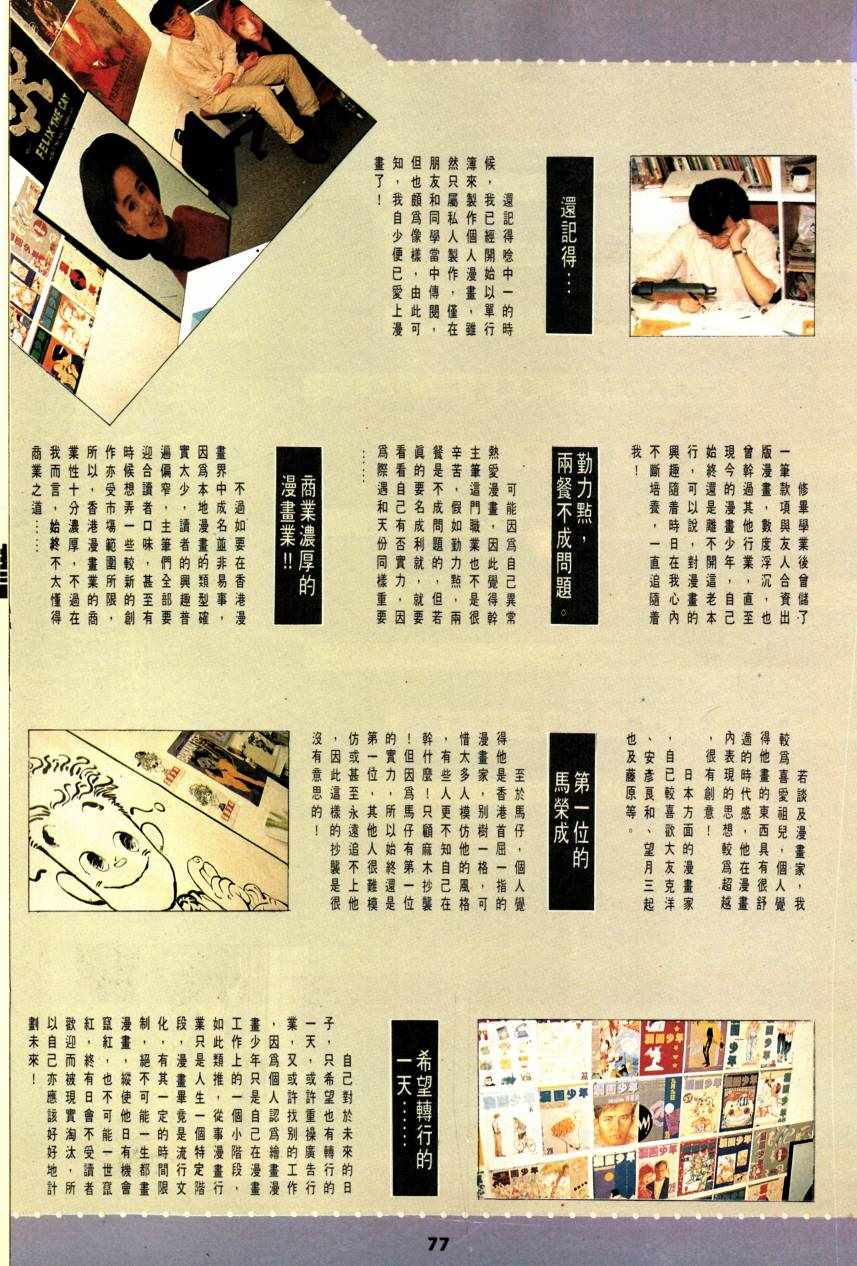 還記得…
　還記得唸中一的時
候，我已經開始以單行
簿來製作個人漫畫，雖
然只屬私人製作，僅在
朋友和同學當中傳閱，
但也頗爲像樣，由此可
知，我自少便已愛上漫
畫了！
　修畢學業後曾儲了
一筆款項與友人合資出
版漫畫，數度浮沉，也
曾幹過其他行業，直至
現今的漫畫少年，自己
始終還是離不開這老本
行，可以說，對漫畫的
興趣隨着時日在我心內
不斷培養，一直追隨着
我！
勤力點，
兩餐不成問題。
　可能因爲自己異常
熱愛漫畫，因此覺得幹
主筆這門職業也不是很
辛苦，假如勤力點，兩
餐是不成問題的，但若
眞的要名成利就，就要
看看自己有否實力，因
爲際遇和天份同樣重要
……
商業濃厚的
漫畫業!!
　不過如要在香港漫
畫界中成名並非易事，
因爲本地漫畫的類型確
實太少，讀者的興趣普
遍偏窄，主筆們全部要
迎合讀者口味，甚至有
時候想弄一些較新的創
作亦受市場範圍所限，
所以，香港漫畫業的商
業性十分濃厚，不過在
我而言，始終不太懂得
商業之道……
　若談及漫畫家，我
較爲喜愛祖兒，個人覺
得他畫的東西具有很舒
適的時代感，他在漫畫
內表現的思想較爲超越
，很有創意！
　日本方面的漫畫家
，自己較喜歡大友克洋
、安彥良和、望月三起
也及藤原等。
第一位的
馬榮成
　至於馬仔，個人覺
得他是香港首屈一指的
漫畫家，別樹一格，可
惜太多人模仿他的風格
，有些人更不知自己在
幹什麼！只顧麻木抄襲
！但因爲馬仔有第一位
的實力，所以始終還是
第一位，其他人很難模
仿或甚至永遠追不上他
，因此這樣的抄襲是很
沒有意思的！
希望轉行的
一天……
　自己對於未來的日
子，只希望也有轉行的
一天，或許重操廣告行
業，又或許找別的工作
，因爲個人認爲繪畫漫
畫少年只是自己在漫畫
工作上的一個小階段，
如此類推，從事漫畫行
業只是人生一個特定階
段，漫畫畢竟是流行文
化，有其一定的時間限
制，絕不可能一生都畫
漫畫，縱使他日有機會
竄紅，也不可能一世竄
紅，終有日會不受讀者
歡迎而被現實淘汰，所
以自己亦應該好好地計
劃未來！
FELIX THE CAT
漫畫少年
漫畫少年
漫畫少年
77